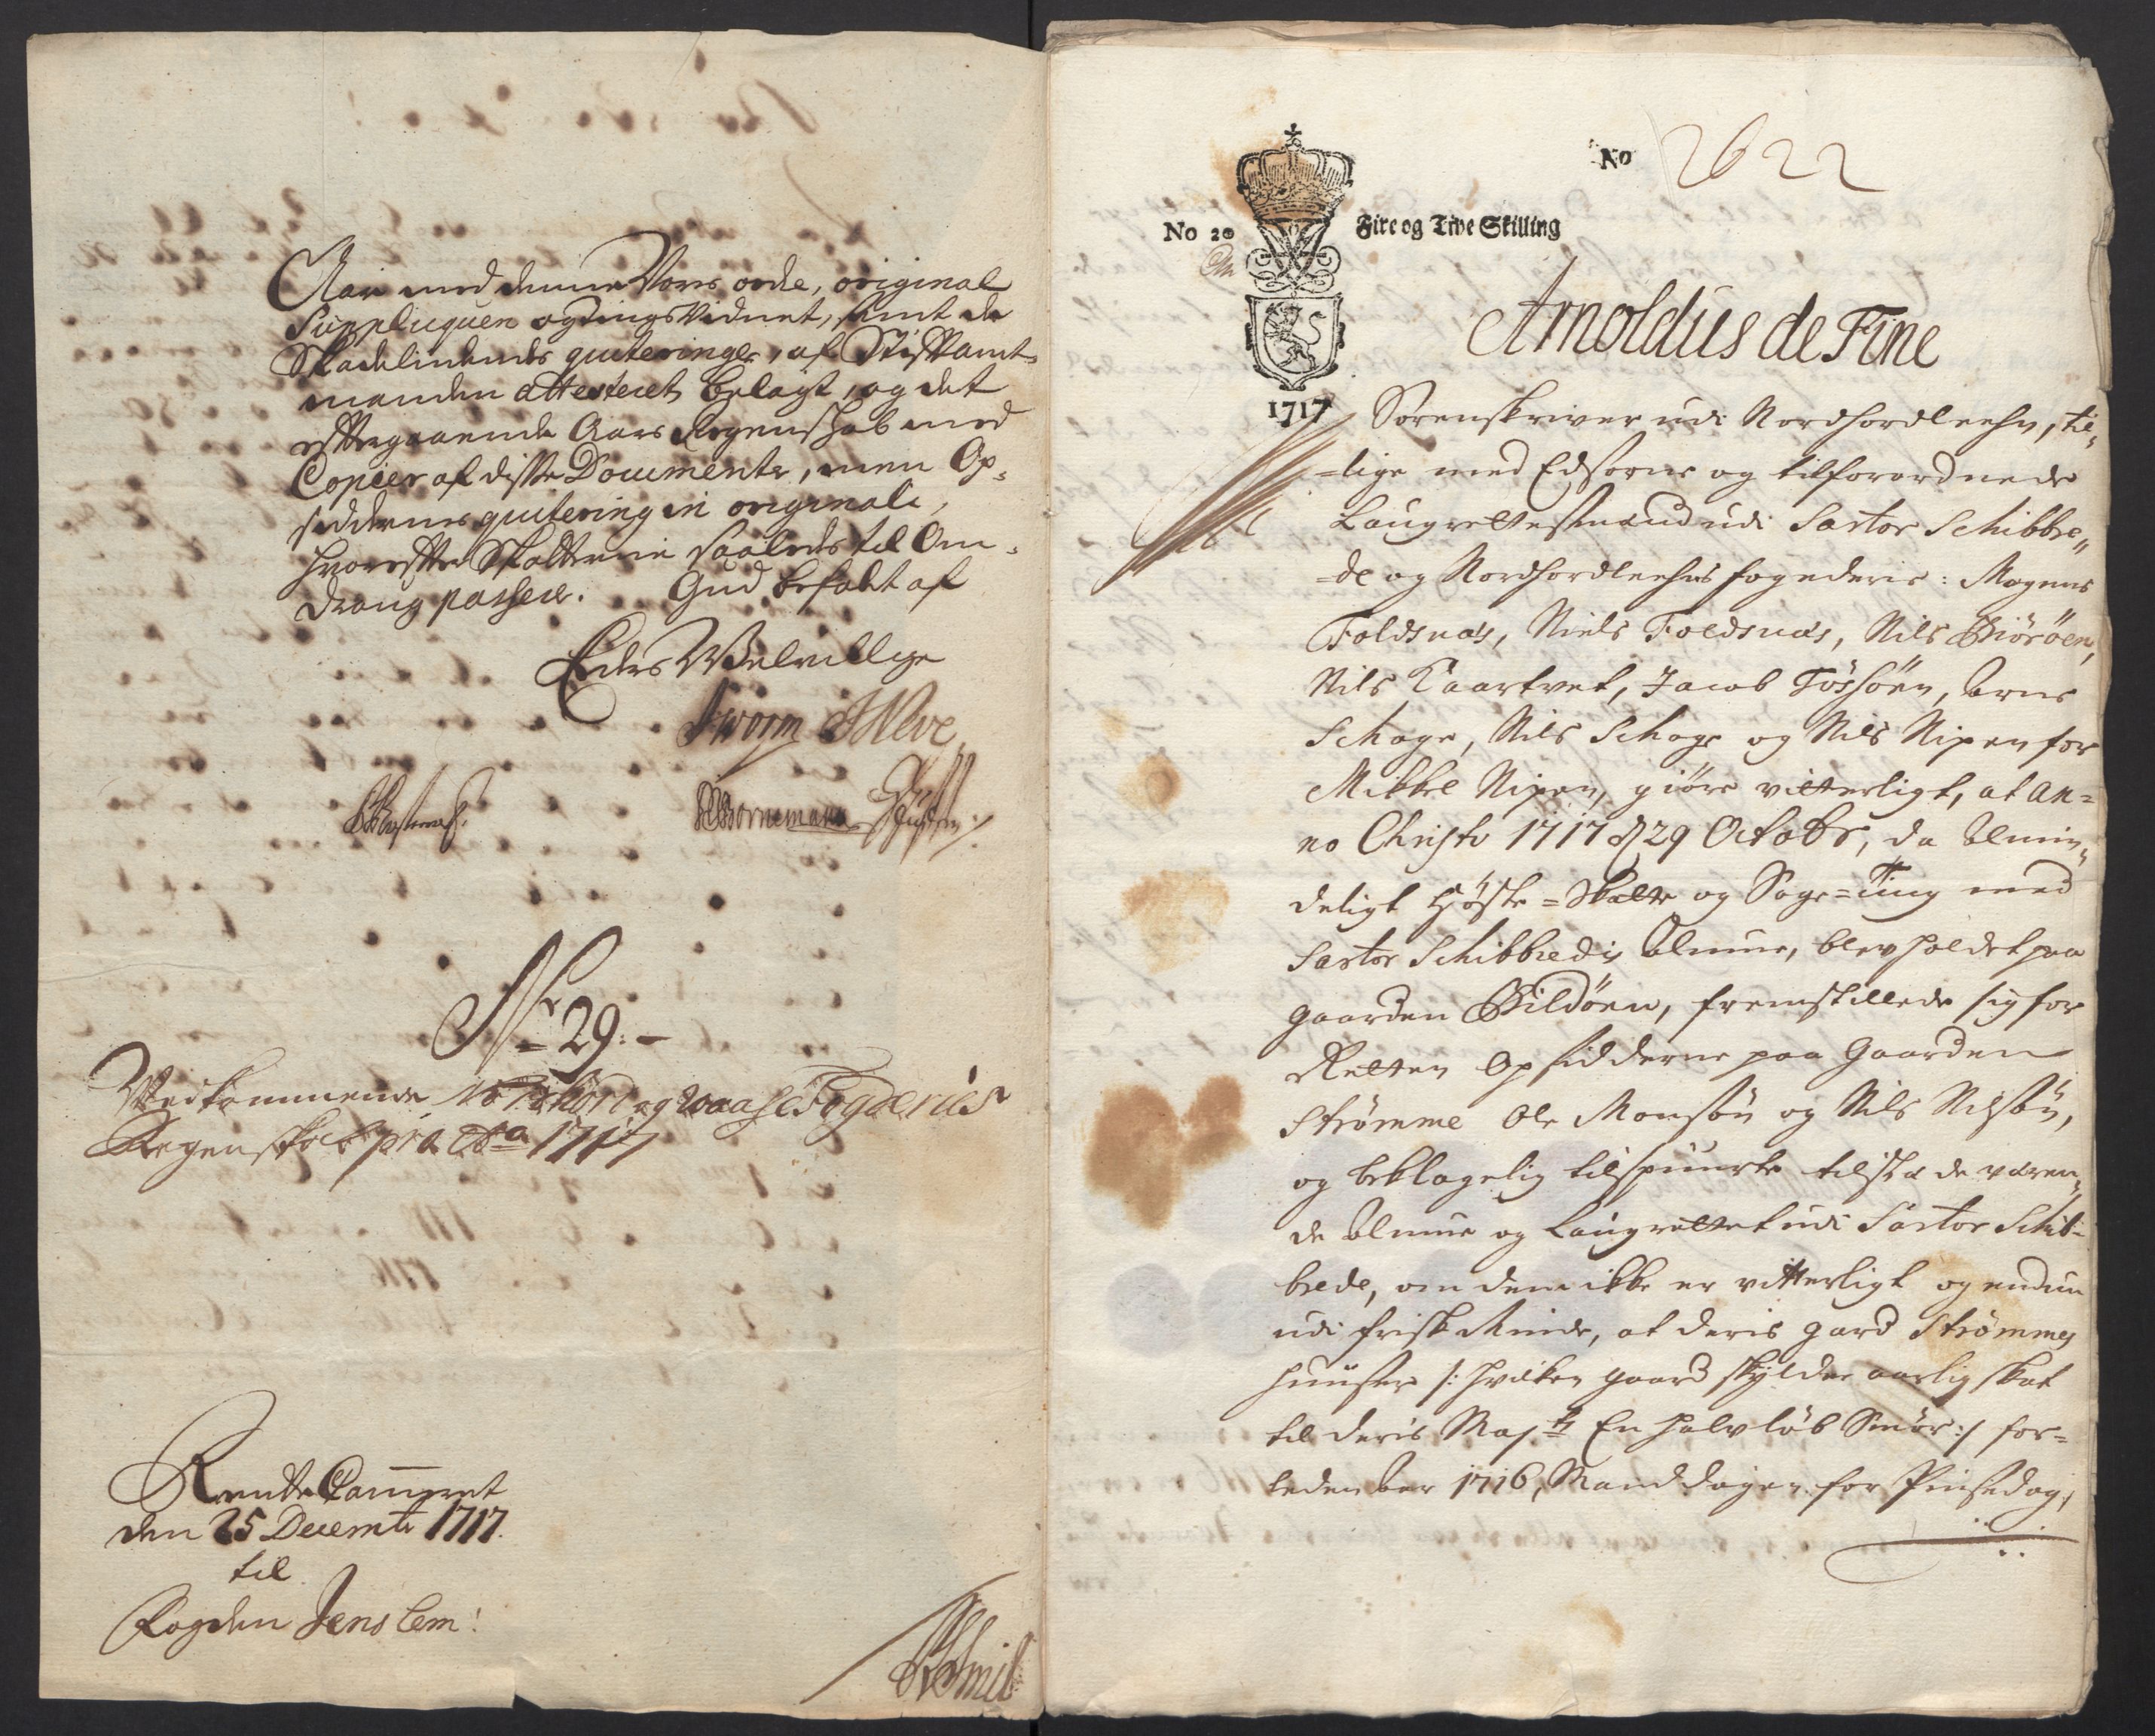 Aar med denne Vores ordre, original
Suppliquen og tings Vidnet, samt de
Skadelidendes quiteringer, af Stiftamt-
manden attesteret belagt, og det
efftergaaende Aars Regenskab med
Copier af disse Documenter, men Op-
siddernes quitering in originali,
hvorefter Skatterne saaledes til Om-
drang passere. Gud befalet af
Eders Welvillige
JWorm
Bornemann
No 29:-
Vedkommende Nordhord og Waas Fogderies
Regenskab pro Ao 1717
Rente Cammeret
den 25 Decembr 1717.
til
Fogden Jens Lem!
No 2622
No 20 Fire og Tive Skilling
1717
Arnoldus de Fine
Sorenskriver udi Nordhordlehn, til-
-lige med Edsorne og tilforordnede
Laugrettesmænd udi Sartor Schibbre-
-de og Nordhordlehns fogderie: Mogens
Foldsnæs, Niels Foldsnæs, Nils Biöröen,
Nils Kaartvet, Jacob Tössöen, Arne
Schoge, Nils Schoge og Nils Nipen for
Mikkel Nipen, giöre vitterligt, at An-
no Christi 1717 d 29 Octobr, da Almin-
deligt Höste-Skatte og Sage-Ting med
Sartor Schibbredis Almue, blev holdet paa
gaarden Bildöen, fremstillede sig for
Retten Opsidderne paa Gaarden
Strömme Ole Monsön og Nils Nilsön,
og beklagelig tilspuurte tilstæde væren-
de Almue og Laugrettet udi Sartor Schib-
brede, om dem ikke er vitterligt og endnu
udi frisk Minde, at deris gard Strömmes
huuser /: hvilken gaard skylder aarlig skat
til deris Majts En halv löb Smör :/ for-
leden Aar 1716, Mand dagen for Pinsedag,